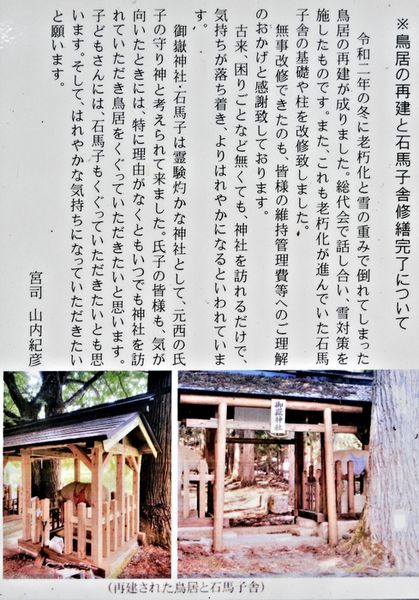 ※鳥居の再建と石馬子舎修繕完了について
令和二年の冬に老朽化と雪の重みで倒れてしまった
鳥居の再建が成りました。総代会で話し合い、雪対策を
施したものです。また、これも老朽化が進んでいた石馬
子舎の基礎や柱を改修致しました。
無事改修できたのも、皆様の維持管理費等へのご理解
のおかげと感謝致しております。
古来、困りごとなど無くても、神社を訪れるだけで、
気持ちが落ち着き、よりはれやかになるといわれていま
す。
御嶽神社・石馬子は霊験灼かな神社として、元西の氏
子の守り神と考えられて来ました。氏子の皆様も、気が
向いたときには、特に理由がなくともいつでも神社を訪
れていただき鳥居をくぐっていただきたいと思います。
子どもさんには、石馬子もくぐっていただきたいとも思
います。そして、はれやかな気持ちになっていただきたい
と願います。
宮司 山内紀彦
御嶽神社
(再建された鳥居と石馬子舎)